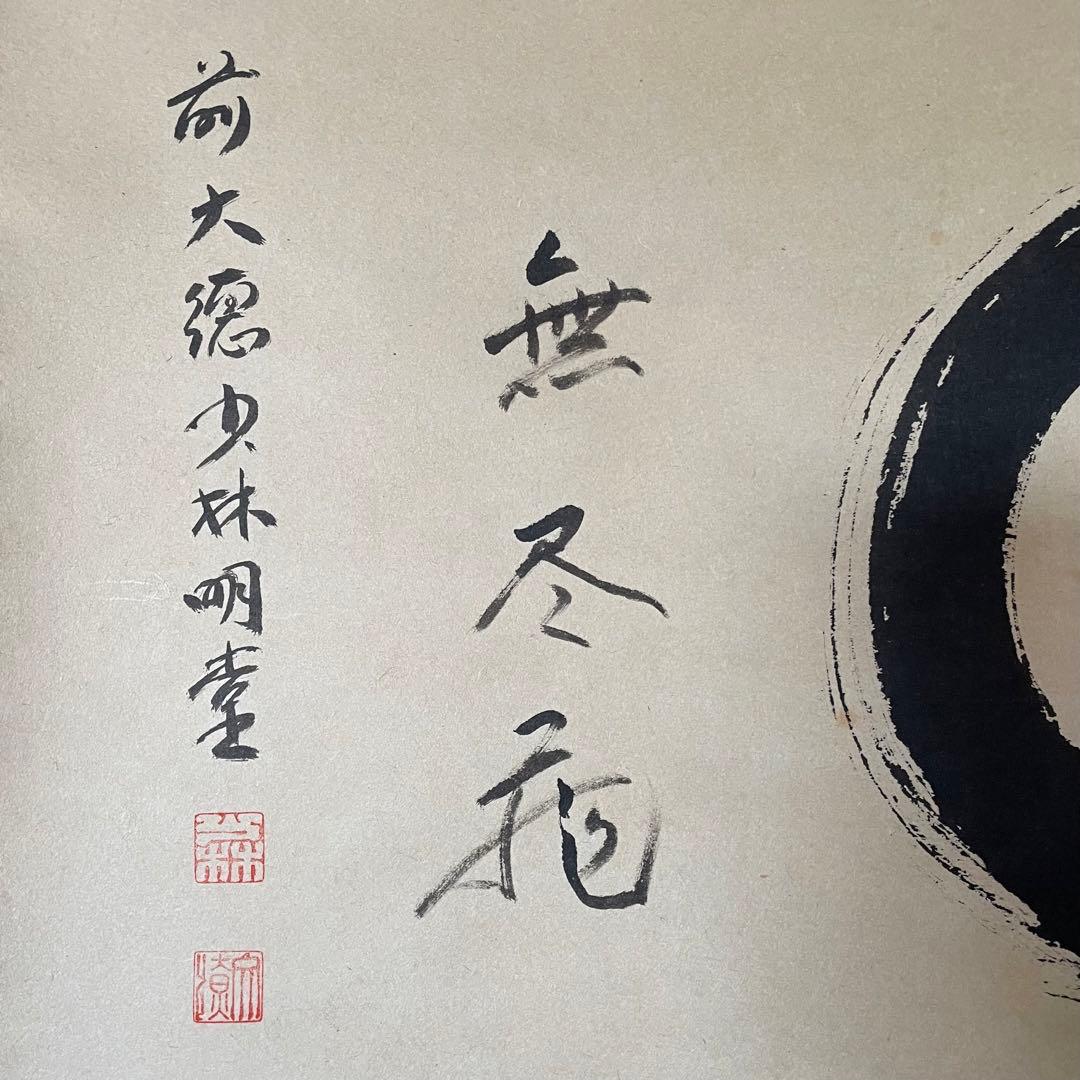 無尽
前大徳少林明堂